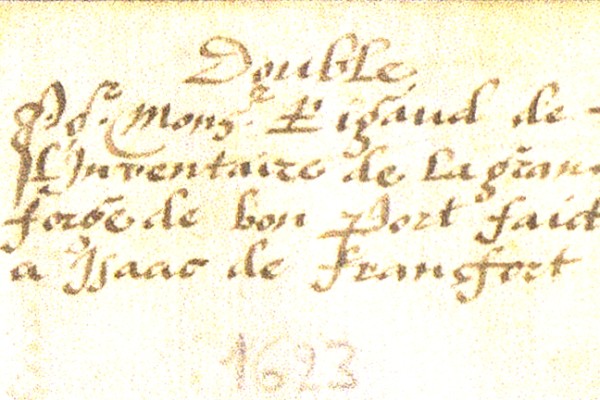 Double
Pr. Monsr. Rigaud de
l'Inventaire de la gran
forge de bon Port faict
a Isaac de Francfort
1623